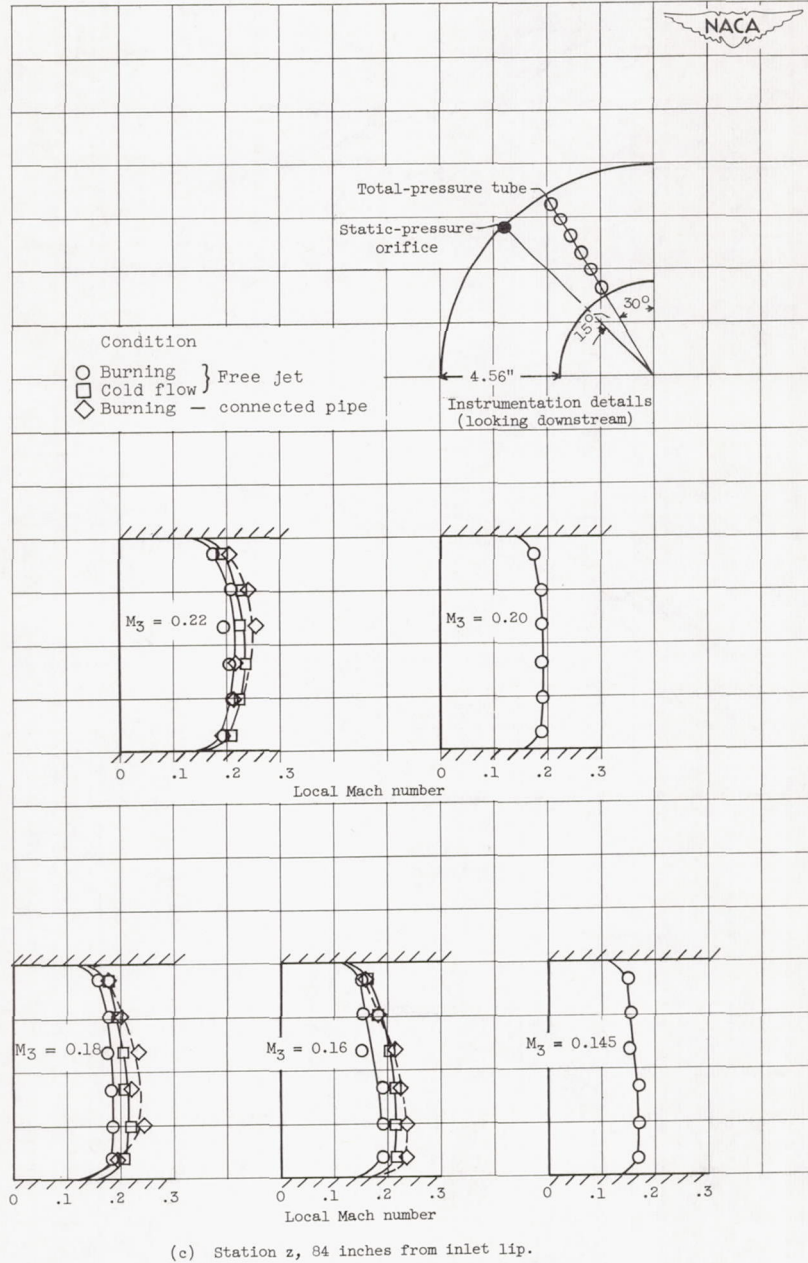 NACA
Total-pressure tube
Static-pressure
orifice
30°
15°
4.56"
Instrumentation details
(looking downstream)
Condition
Burning
Cold flow
} Free jet
Burning — connected pipe
M3 = 0.22
M3 = 0.20
0 .1 .2 .3
0 .1 .2 .3
Local Mach number
M3 = 0.18
M3 = 0.16
M3 = 0.145
0 .1 .2 .3
0 .1 .2 .3
0 .1 .2 .3
Local Mach number
(c) Station z, 84 inches from inlet lip.